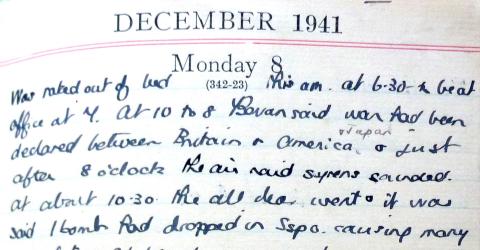 DECEMBER 1941
Monday 8
(342-23)
Was rated out of bed this am. at 6.30 to be at
office at 7. At 10 to 8 Bevan said war had been
declared between Britain & America & Japan & just
after 8 o'clock the air raid syrens sounded.
at about 10.30 the all clear went & it was
said 1 bomb had dropped in Sspo. causing many